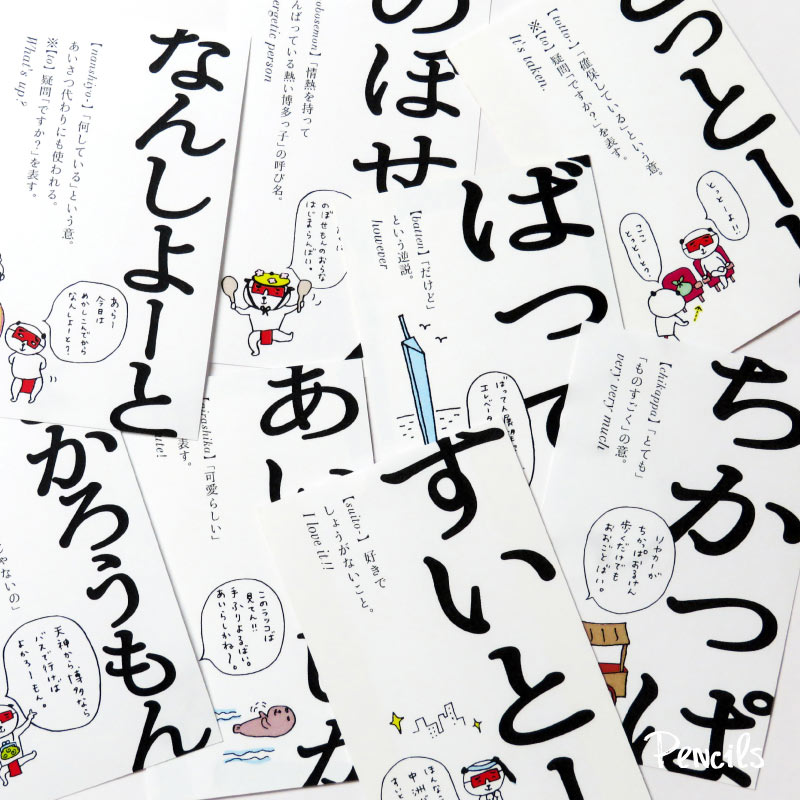 なんしよーと
【nanshiyo-】「何している」という意。
あいさつ代わりにも使われる。
※【to】疑問「ですか？」を表す。
What's up?
あらー
今日は
めかしこんでから
なんしよーと？
のぼせ
「情熱を持って
んばっている熱い博多っ子」の呼び名。
energetic person
のぼせもんのおらな
はじまらんばい。
とっとー
【totto-】「確保している」という意。
※【to】疑問「ですか？」を表す。
It's taken.
とっとーよ！！
ここ
とっとーと？
ばって
【batten】「だけど」
という逆説。
however
ちかっぱ
【chikappa】「とても」
「ものすごく」の意。
very very much
リヤカーが
ちかっぱおるけん
歩くだけでも
おおごとばい。
かろうもん
じゃないの」
天神から博多なら
バスで行けば
よかろーもん。
あい
「可愛らしい」
表す。
このラッコは
見てん！！
手ふりよるばい。
あいらしかね〜。
すいとー
【suito-】好きで
しょうがないこと。
I love it!!
Pencils